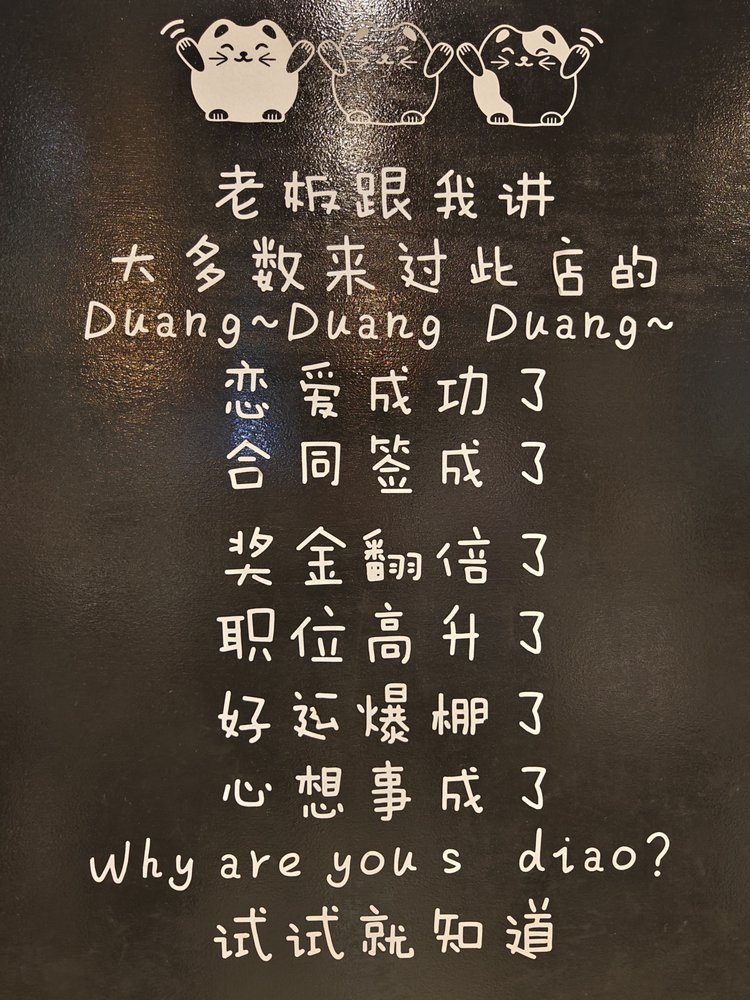 老板跟我讲
大多数来过此店的
Duang~Duang Duang~
恋爱成功了
合同签成了
奖金翻倍了
职位高升了
好运爆棚了
心想事成了
Why are you s diao?
试试就知道